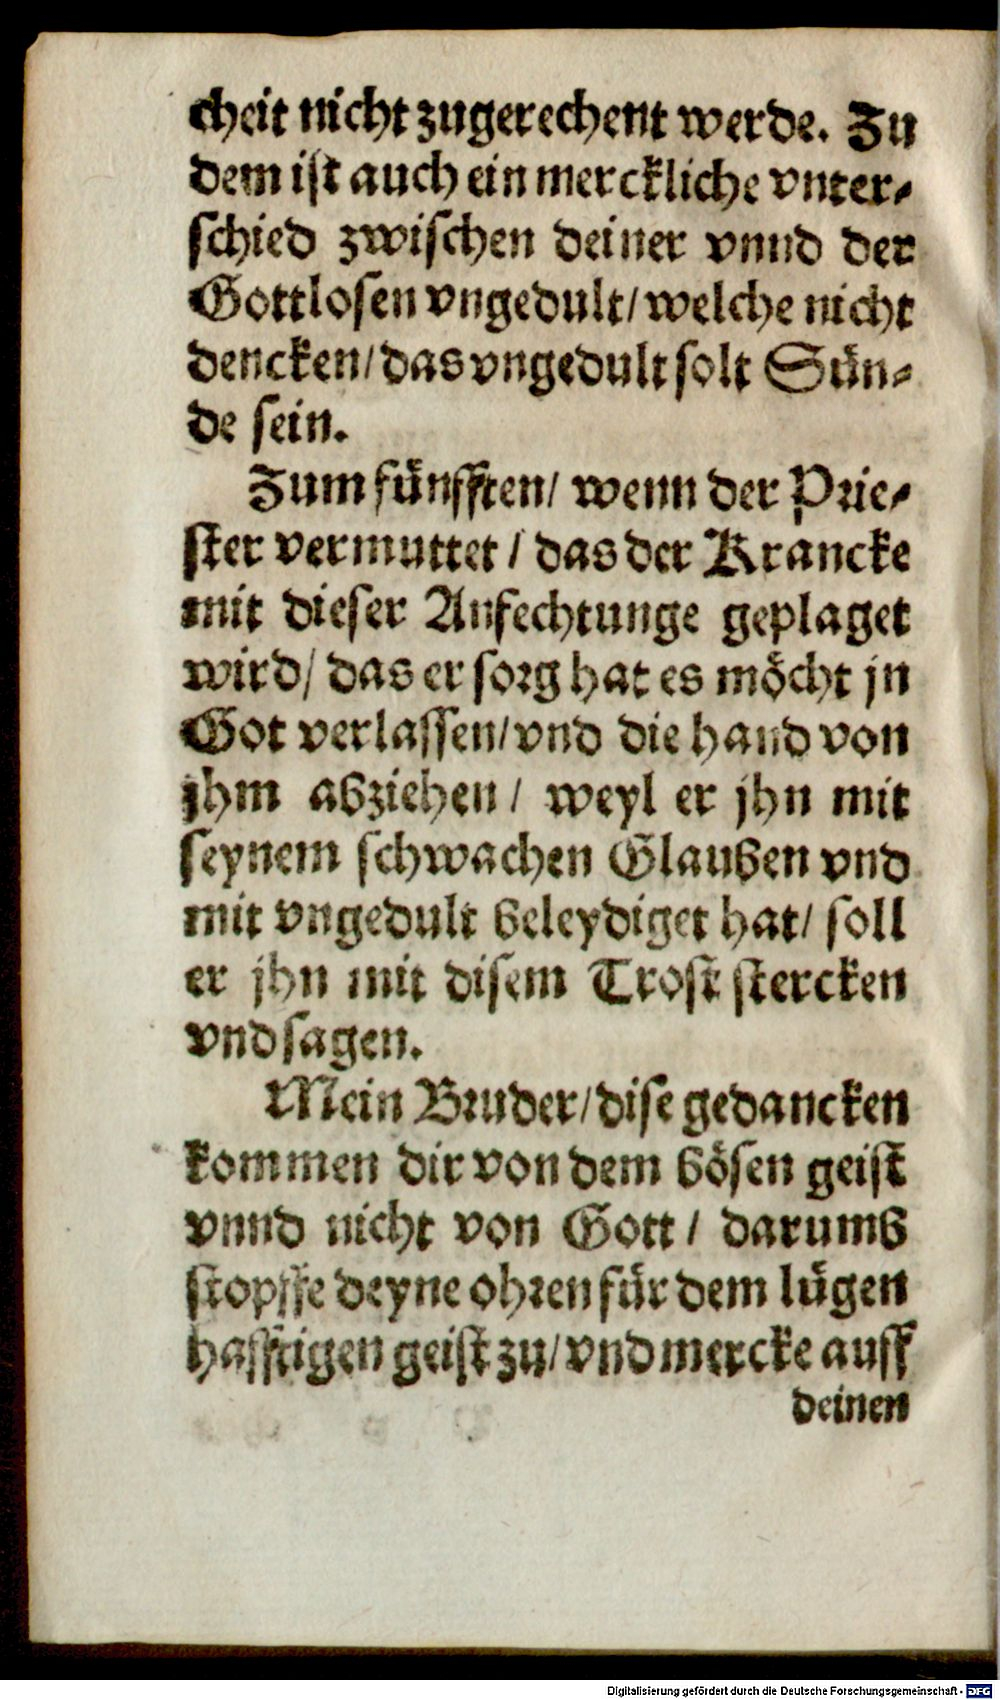 cheit nicht zugerechent werde. Zu
dem ist auch ein merckliche vnter-
schied zwischen deiner vnnd der
Gottlosen vngedult/ welche nicht
dencken/ das vngedult solt Sün-
de sein.
Zum fünfften/ wenn der Prie-
ster vermuttet / das der Krancke
mit dieser Anfechtunge geplaget
wird/ das er sorg hat es möcht jn
Got verlassen/ vnd die hand von
jhm abziehen / weyl er jhn mit
seynem schwachen Glauben vnd
mit vngedult beleydiget hat/ soll
er jhn mit disem Trost stercken
vnd sagen.
Mein Bruder/ dise gedancken
kommen dir von dem bösen geist
vnnd nicht von Gott / darumb
stopffe deyne ohren für dem lügen
hafftigen geist zu/ vnd mercke auff
deinen
Digitalisierung gefördert durch die Deutsche Forschungsgemeinschaft - DFG